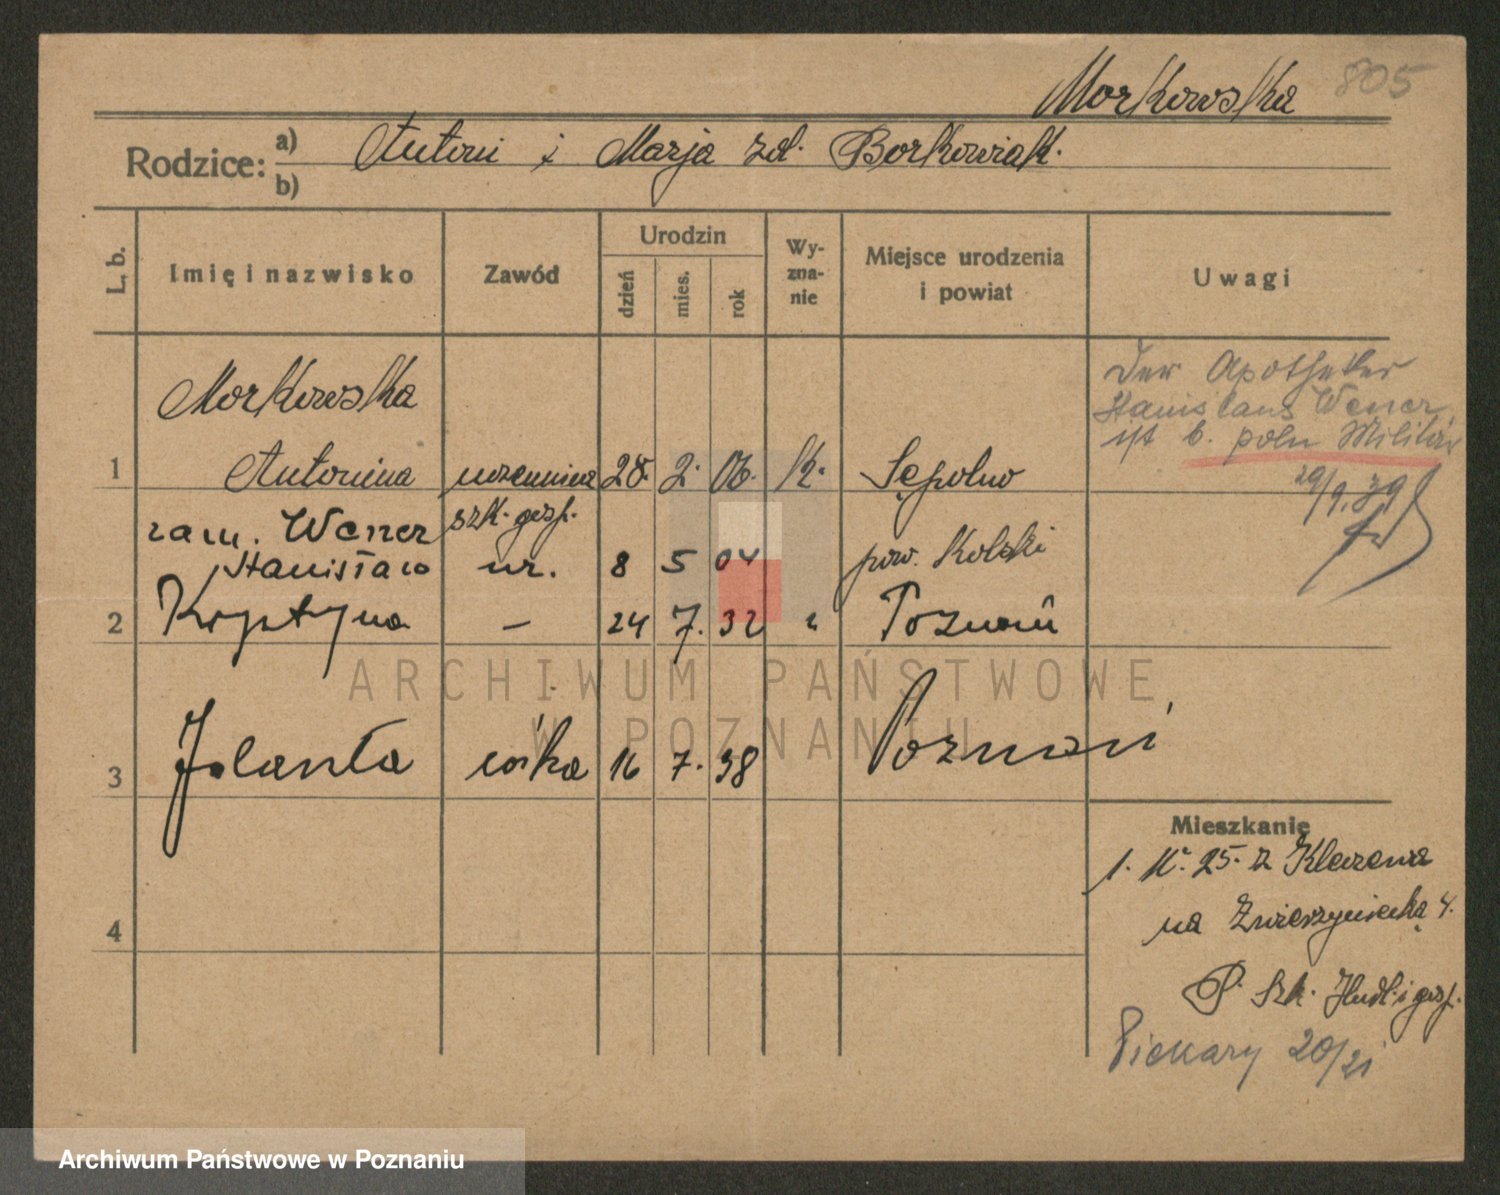 Morkowska 805
Rodzice: a) Antoni i Marja zd. Borkowiak.
b)
L. b.
Imię i nazwisko
Zawód
Urodzin
dzień
mies.
rok
Wy-
zna-
nie
Miejsce urodzenia
i powiat
Uwagi
Morkowska
1 Antonina uczennica 28. 2. 06. k. Sępolno
szk. gosp.
zam. Wener
Stanisław ur. 8 5 04 pow. Kolski
2 Krystyna — 24 7. 32 " Poznań
3 Jolanta córka 16 7. 38 Poznań
4
Der Apotheker
Stanislaus Wener
ist b. poln Militär
29/9.39
Mieszkanie
1. 25. z
na Zwierzyniecką 4.
P. Szk. Hudl. i gosp.
Piekary 20/21
ARCHIWUM PAŃSTWOWE
W POZNANIU
Archiwum Państwowe w Poznaniu